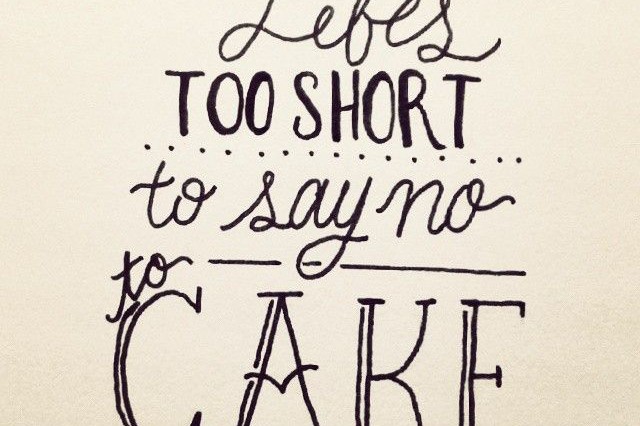 Lifes
TOO SHORT
to say no
to
CAKE